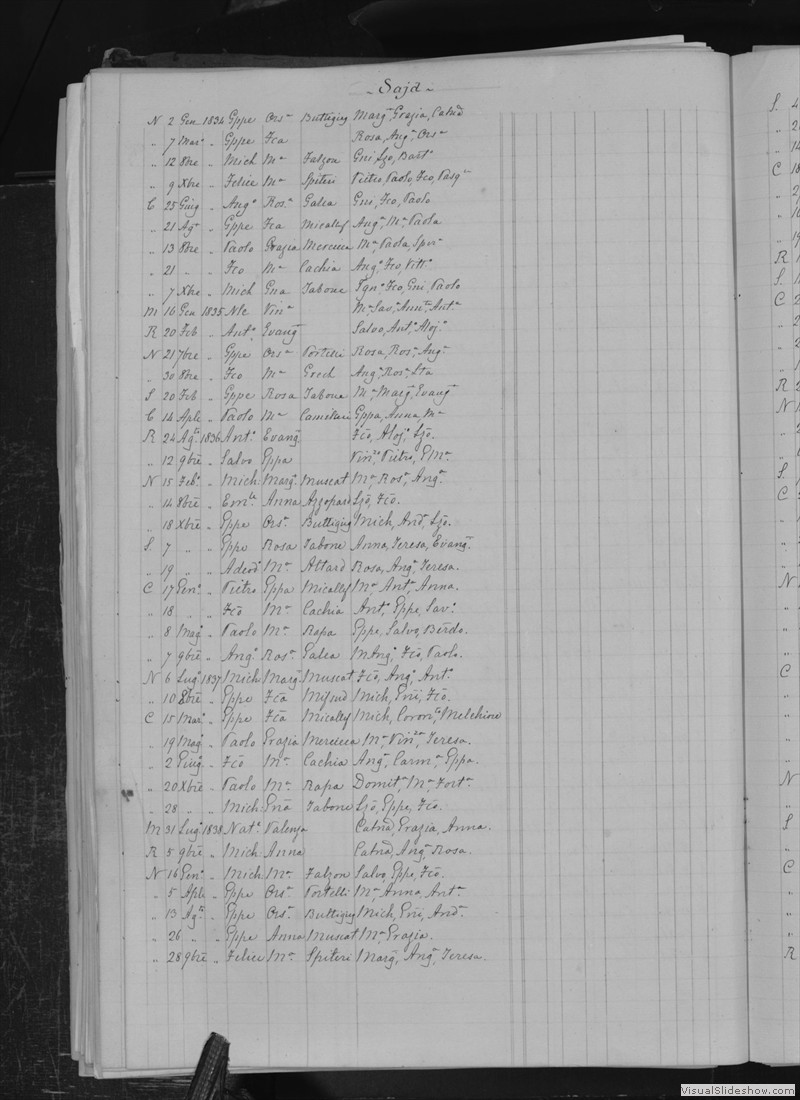 Sajd
N 2 Gen 1834 Gppe Ors.a Buttigieg Marg.a, Grazia, Catnd
" 7 Mar.o " Gppe Fca Rosa, Ang.a, Ors.a
" 12 8bre " Mich M.a Falzon Gni, Ljo, Bart.o
" 9 Xbre " Felice M.a Spiteri Pietro, Paolo, Fco, Pasq.e
C 25 Giug " Ang.o Ros.a Galea Gni, Fco, Paolo
" 21 Ag.o " Gppe Fca Micallef Ang.a, M.a, Paola
" 13 8bre " Paolo Grazia Mercieca M.a, Paola,
" 21 " " Fco M.a Cachia Ang.o, Fco, Vitt.o
" 7 Xbre " Mich Gna Tabone Ign.o, Fco, Gni, Paolo
M 16 Gen 1835 Nle Vin.a M.a, Sav.a, Ant.a
R 20 Feb " Ant.o Evang Salvo, Ant.o, Aloj.o
N 21 7bre " Gppe Ors.a Portelli Rosa, Ros.a, Ang.a
" 30 8bre " Fco M.a Grech Ang.a, Ros.a, Lta
S 20 Feb " Gppe Rosa Tabone M.a, Marg.a, Evang
C 14 Aple " Paolo M.a Camilleri Gppa, Anna, M.a
R 24 Ag.to 1836 Ant.o Evang Fco, Aloj.o, Ljo.
" 12 9bre " Salvo Gppa Vin.zo, Pietro, G M.a
N 15 Feb.o " Mich. Marg.a Muscat M.a, Ros.a, Ang.a
" 14 8bre " Em.le Anna Azzopard Ljo, Fco.
" 18 Xbre " Gppe Ors.a Buttigieg Mich, And, Ljo.
S. 7 " " Gppe Rosa Tabone Anna, Teresa, Evang.
" 19 " " Adeod.o M.a Attard Rosa, Ang.a, Teresa.
C 17 Gen.o " Pietro Gppa Micallef M.a, Ant.a, Anna.
" 18 " " Fco M.a Cachia Ant.o, Gppe, Sav.o
" 8 Mag.o " Paolo M.a Rapa Gppe, Salvo, Berdo.
" 7 9bre " Ang.o Ros.a Galea M Ang.o, Fco, Paolo.
N 6 Lug.o 1837 Mich Marg.a Muscat Fco, Ang.o, Ant.o
" 10 8bre " Gppe Fca Mifsud Mich, Gni, Fco.
C 15 Mar.o " Gppe Fca Micallef Mich, Coron.to, Melchiore
" 19 Mag.o " Paolo Grazia Mercieca M.a, Vin.za, Teresa.
" 2 Giug.o " Fco M.a Cachia Ang.a, Carm.a, Gppa.
" 20 Xbre " Paolo M.a Rapa Domit.a, M.a, Fort.a
" 28 " " Mich Gna Tabone Ljo, Gppe, Fco.
M 31 Lug.o 1838 Nat.e Valenza Catnd, Grazia, Anna.
R 5 9bre " Mich Anna Catnd, Ang.a, Rosa.
N 16 Gen.o " Mich M.a Falzon Salvo, Gppe, Fco.
" 5 Aple " Gppe Ors.a Portelli M.a, Anna, Ant.a
" 13 Ag.to " Gppe Ors.a Buttigieg Mich, Gni, And.
" 26 " " Gppe Anna Muscat M.a, Grazia.
" 28 9bre " Felice M.a Spiteri Marg, Ang.a, Teresa.
VisualSlideshow.com